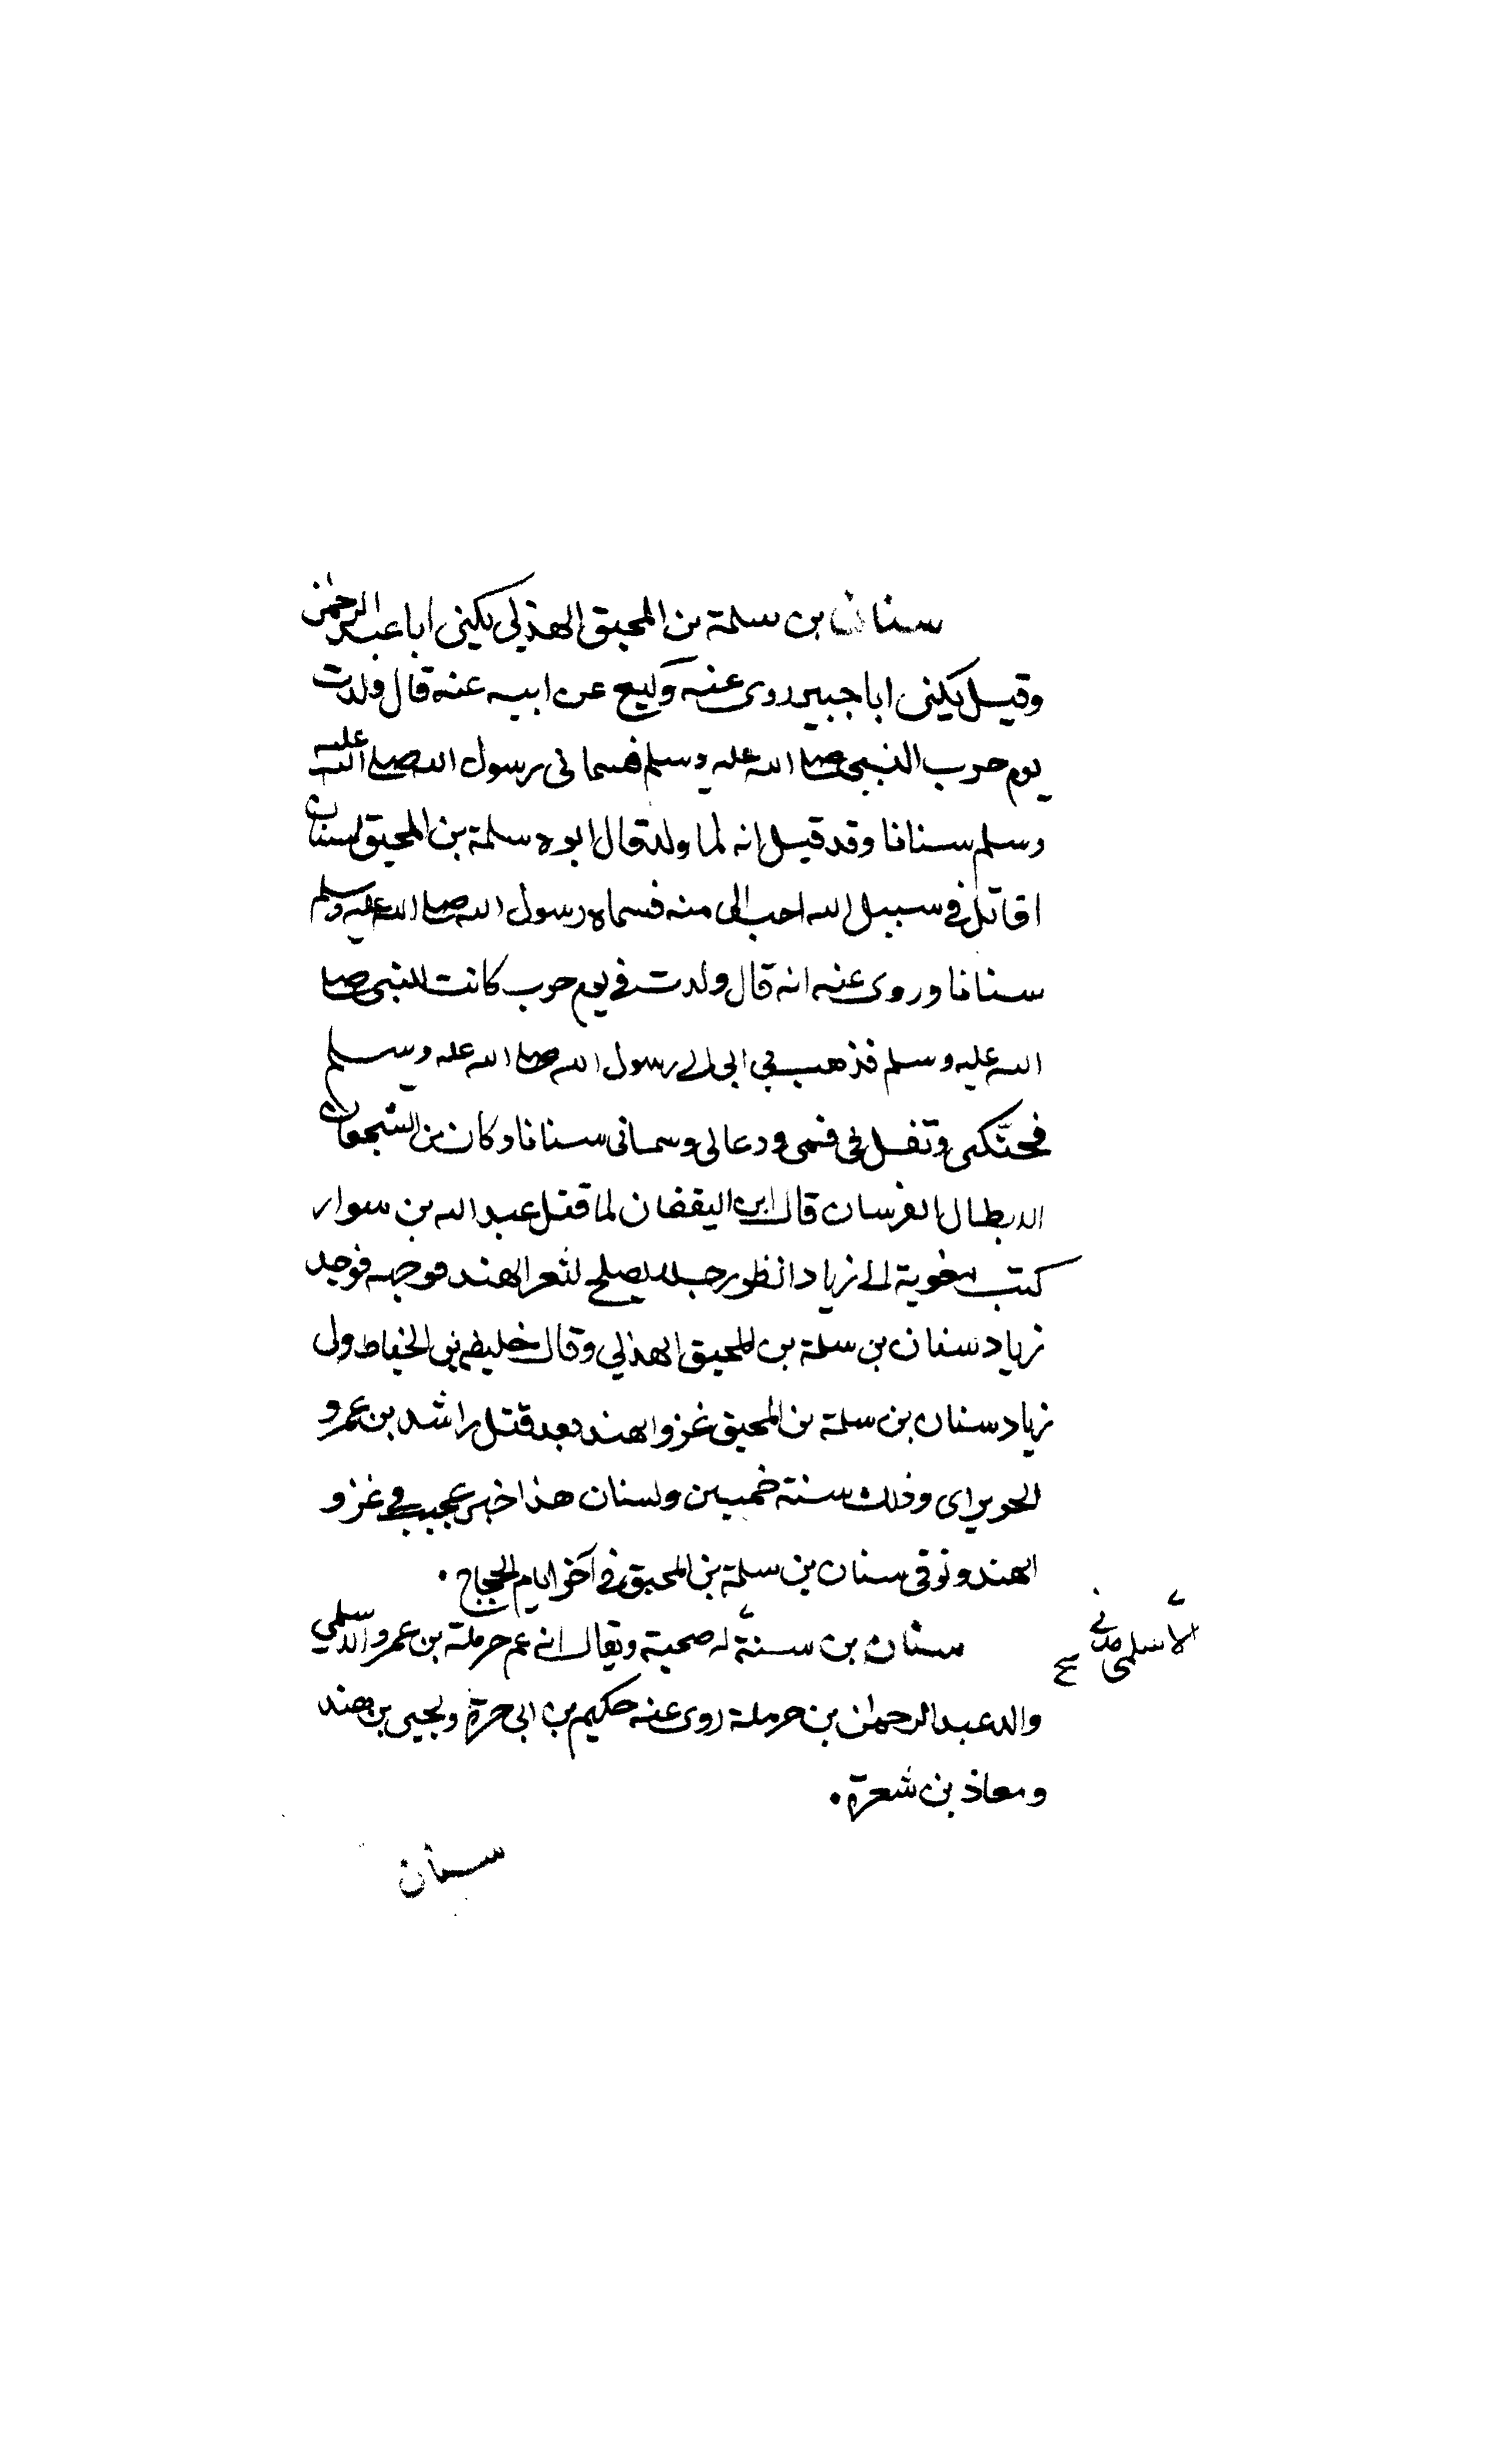 سنان بن سلمة بن المحبق الهذلي يكنى ابا عبد الرحمن
وقيل يكنى ابا جبير روى عنه وكيع عن ابيه عنه قال ولدت
يوم حرب النبى صلى الله عليه وسلم فسمانى رسول الله صلى الله عليه
وسلم سنانا وقد قيل انه لما ولد قال ابوه سلمة بن المحبق لسنان
اقاتل في سبيل الله احب الى منه فسماه رسول الله صلى الله عليه وسلم
سنانا وروى عنه انه قال ولدت في يوم حرب كانت للنبى صلى
الله عليه وسلم فذهب بي ابى الى رسول الله صلى الله عليه وسلم
فحنّكنى وتفل في فمى ودعا لى وسمانى سنانا وكان من الشجعان
الابطال الفرسان قال ابن اليقفان لما قتل عبد الله بن سوار
كتب معوية الى زياد انظر رجلا يصلح لثغر الهند فوجهه فوجد
زياد سنان بن سلمة بن المحبق الهذلي وقال خليفة بن الخياط ولى
زياد سنان بن سلمة بن المحبق غزو الهند بعد قتل راشد بن عمرو
الحويراى وذلك سنة خمسين ولسنان هذا خبر عجيب في غزو
الهند وتوفى سنان بن سلمة بن المحبق في آخر ايام الحجاج .
سنان بن سنة له صحبة ويقال انه عم حرملة بن عمرو الاسلمي
الاسلمى مدني صح
والد عبد الرحمن بن حرملة روى عنه حكيم بن ابى حرة ويحيى بن هند
ومعاذ بن شعرة .
سنان